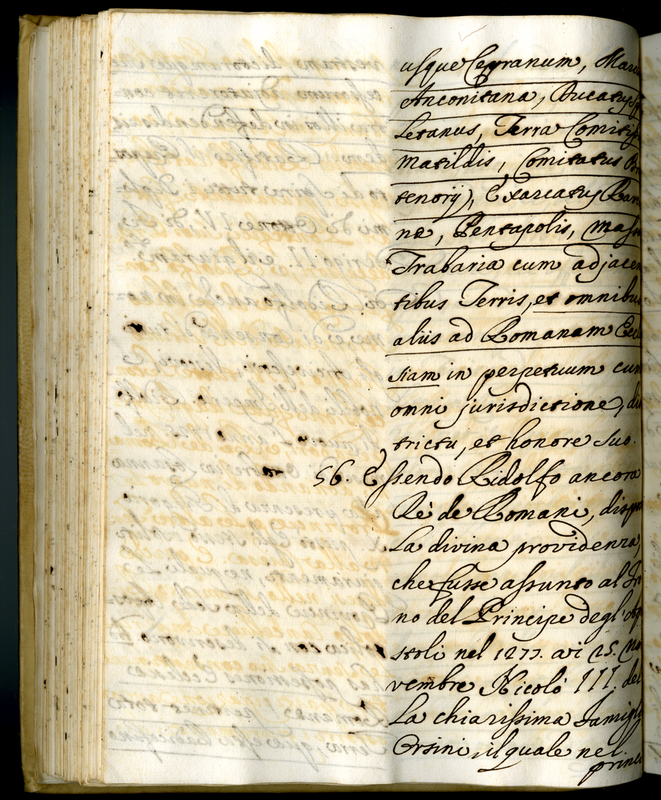 usque Cepranum, Marc
Anconitana, Ducatus Sp
letanus, Terra Comitis
Matildis, Comitatus Br
tenorij, Exarcatus Raue
na, Pentapolis, Mass
Trabaria cum adjacen
tibus Terris, et omnibu
aliis ad Romanam Eccl
siam in perpetuum cum
omni jurisdictione, dis
trictu, et honore suo.
56. Essendo Ridolfo ancora
Rè de Romani, dispo
La divina providenza,
che fusse assunto al Tr
no del Principe degl' Apo
stoli nel 1277. a i 25. No
vembre Nicolò III. del
La chiarissima famigl
Orsini, il quale nel
princi